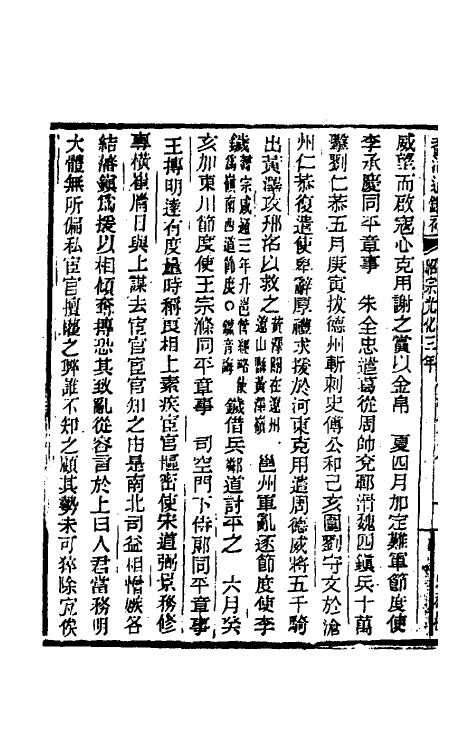 昭宗光化三年
威望而啟寇心克用謝之賞以金帛　夏四月加定難軍節度使
李承慶同平章事　朱全忠遣葛從周帥兗鄆滑魏四鎮兵十萬
擊劉仁恭五月庚寅拔德州斬刺史傅公和己亥圍劉守文於滄
州仁恭復遣使卑辭厚禮求援於河東克用遣周德威將五千騎
出黃澤攻邢洺以救之黃澤關在遼州遼山縣黃澤嶺　邕州軍亂逐節度使李
鐬懿宗咸通三年升邕管經略使為嶺南西道節度○鐬音誨鐬借兵鄰道討平之　六月癸
亥加東川節度使王宗滌同平章事　司空門下侍郎同平章事
王摶明達有度量時稱良相上素疾宦官樞密使宋道弼景務修
專橫崔胤日與上謀去宦官宦官知之由是南北司益相憎嫉各
結藩鎮爲援以相傾奪摶恐其致亂從容言於上曰人君當務明
大體無所偏私宦官擅權之弊誰不知之顧其勢未可猝除宜俟